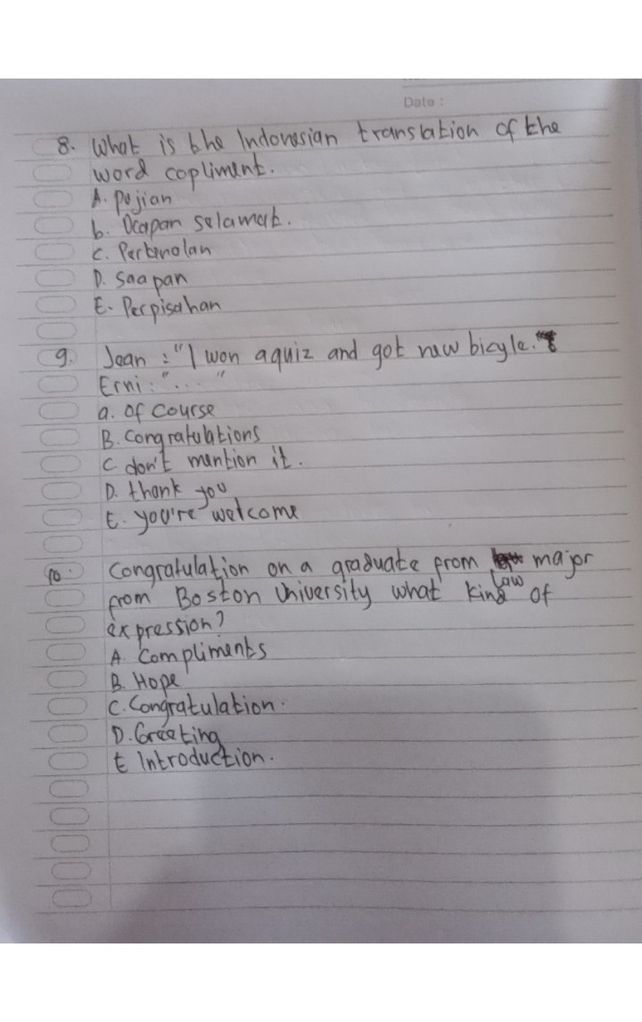 Date :
8. What is the Indonesian translation of the
word copliment.
A. pujian
b. Ucapan selamat.
c. Perkenalan
D. Saapan
E. Perpisahan
9. Jean : "I won a quiz and got new bicyle."
Erni : "... "
a. of course
B. Congratulations
C don't mention it.
D. thank you
E. you're welcome
10. Congratulation on a graduate from law major
from Boston University what kind of
expression?
A. Compliments
B. Hope
C. Congratulation.
D. Greeting
E Introduction.